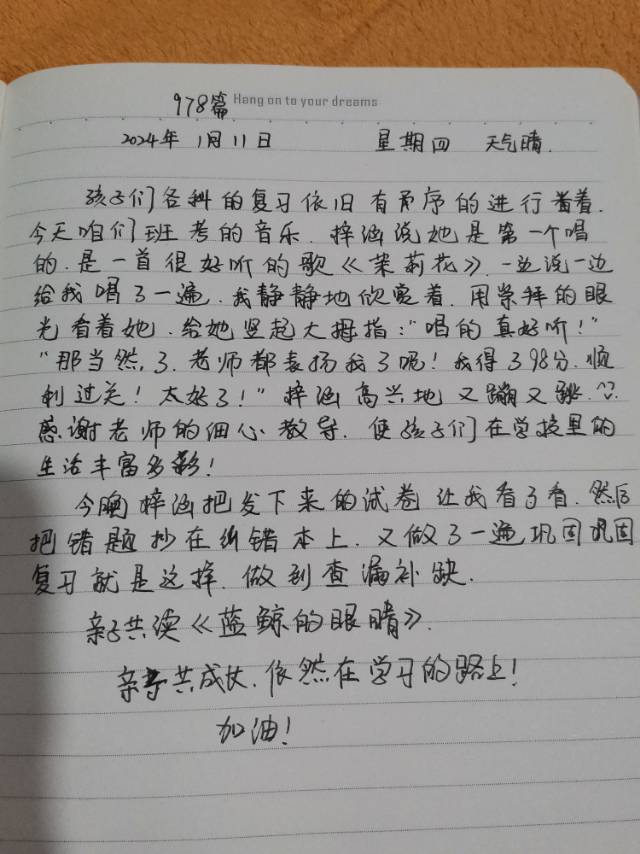 978篇 Hang on to your dreams
2024年 1月11日 星期四 天气晴.
孩子们各科的复习依旧有矛序的进行着着.
今天咱们班考的音乐.梓涵说她是第一个唱
的.是一首很好听的歌《茉莉花》.一边说一边
给我唱了一遍.我静静地欣赏着.用崇拜的眼
光看着她.给她竖起大拇指:"唱的真好听!"
"那当然了.老师都表扬我了呢!我得了98分.顺
利过关!太好了!"梓涵高兴地又蹦又跳.
感谢老师的细心教导.使孩子们在学校里的
生活丰富多彩!
今晚梓涵把发下来的试卷让我看了看.然后
把错题抄在纠错本上.又做了一遍巩固巩固
复习就是这样.做到查漏补缺.
亲子共读《蓝鲸的眼睛》.
亲子共成长.依然在学习的路上!
加油!